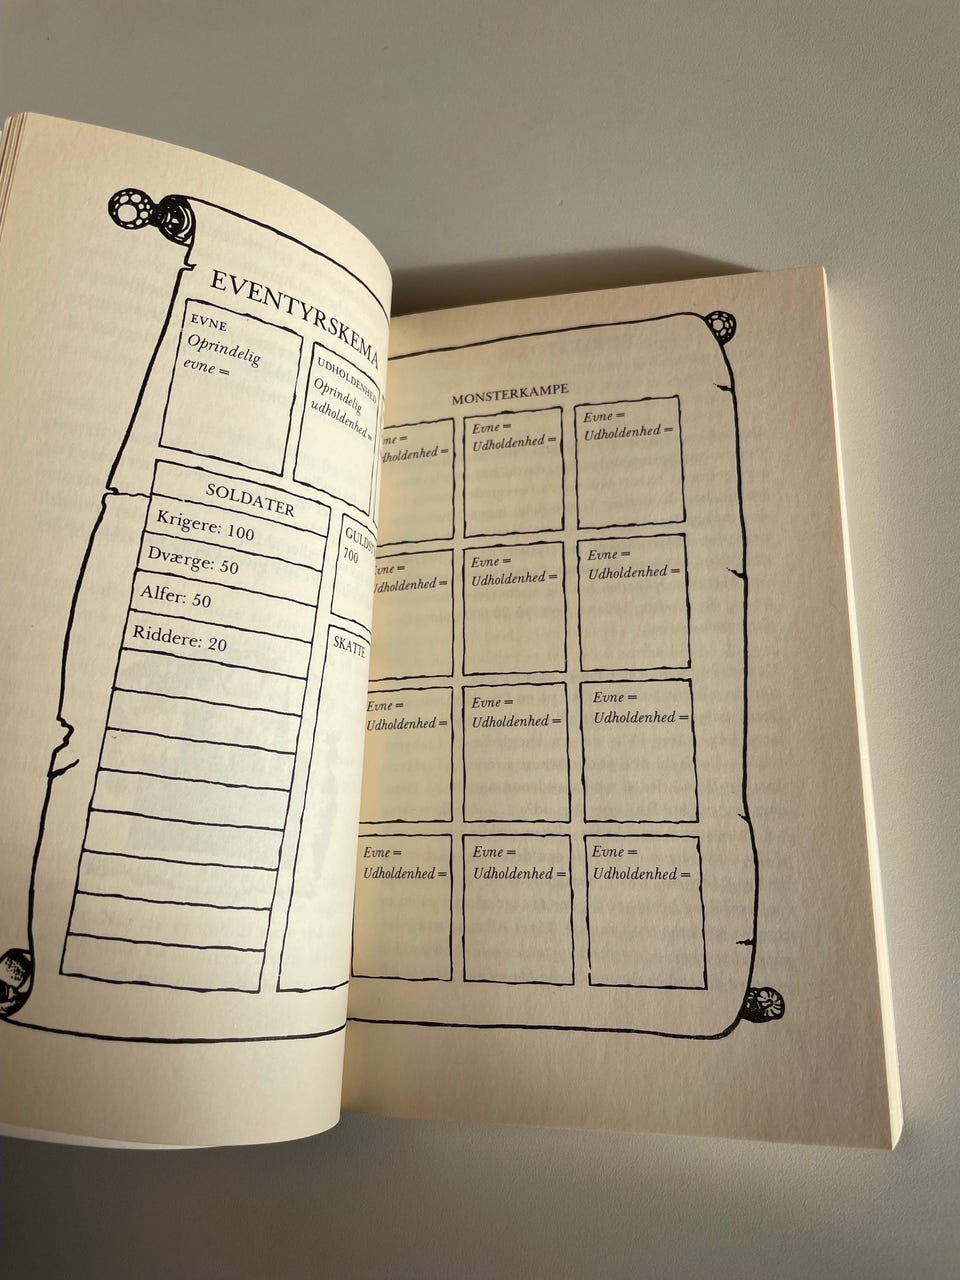 EVENTYRSKEMA
EVNE
Oprindelig
evne =
UDHOLDENHED
Oprindelig
udholdenhed =
SOLDATER
Krigere: 100
Dværge: 50
Alfer: 50
Riddere: 20
700
SKATTE
MONSTERKAMPE
Evne =
Udholdenhed =
Evne =
Udholdenhed =
Evne =
Udholdenhed =
Evne =
Udholdenhed =
Evne =
Udholdenhed =
Evne =
Udholdenhed =
Evne =
Udholdenhed =
Evne =
Udholdenhed =
Evne =
Udholdenhed =
Evne =
Udholdenhed =